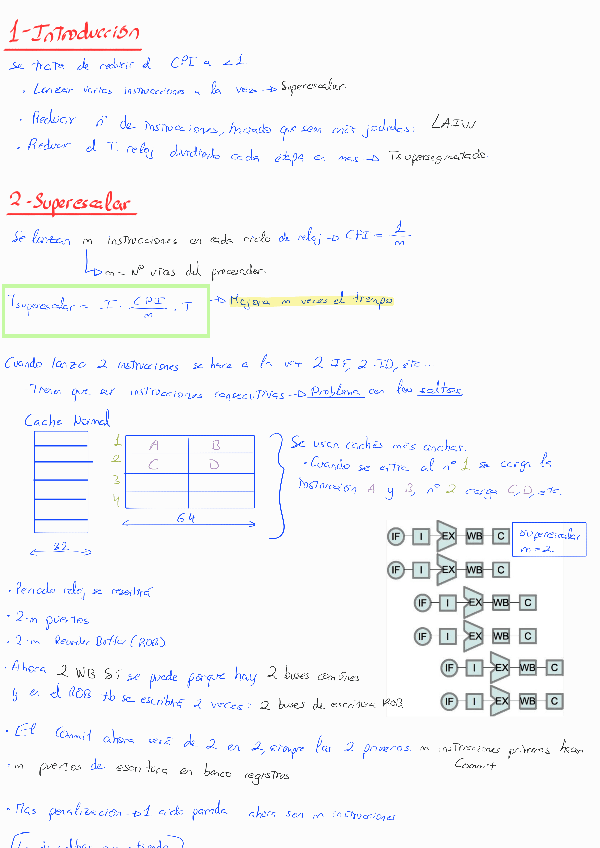 1-Introducción
Se trata de reducir el CPI a <1
· Lanzar varias instrucciones a la vez → Superescalar
· Reducir nº de instrucciones, haciendo que sean más jodidas:
· Reducir el T. reloj dividiendo cada etapa en más → Tsupersegmentado
2-Superescalar
Se lanzan m instrucciones en cada ciclo de reloj → CPI = 1/m
m = Nº vías del procesador.
Tsuperescalar = I · CPI/m · T → Mejora m veces el tiempo
Cuando lanza 2 instrucciones se hace a la vez 2 IF, 2 ID, etc..
Tienen que ser instrucciones consecutivas → Problema con los saltos
Cache Normal
1 A B
2 C D
3
4
32
64
Se usan cachés más anchas.
· Cuando se entra al nº 1 se carga la
instrucción A y B, nº 2 carga C, D, etc.
Superescalar
m = 2
IF I EX WB C
IF I EX WB C
IF I EX WB C
IF I EX WB C
IF I EX WB C
IF I EX WB C
· Periodo reloj se
· 2·m puertos
· 2·m Reorder Buffer (ROB)
· Ahora 2 WB Sí se puede porque hay 2 buses comunes
y en el ROB tb se escribirá 2 veces: 2 buses de escritura ROB
· El Commit ahora será de 2 en 2, siempre las 2 primeras. m instrucciones primeras hacen
Commit
· m puertos de escritura en banco registros
· Mas penalización → 1 ciclo parada ahora son m instrucciones